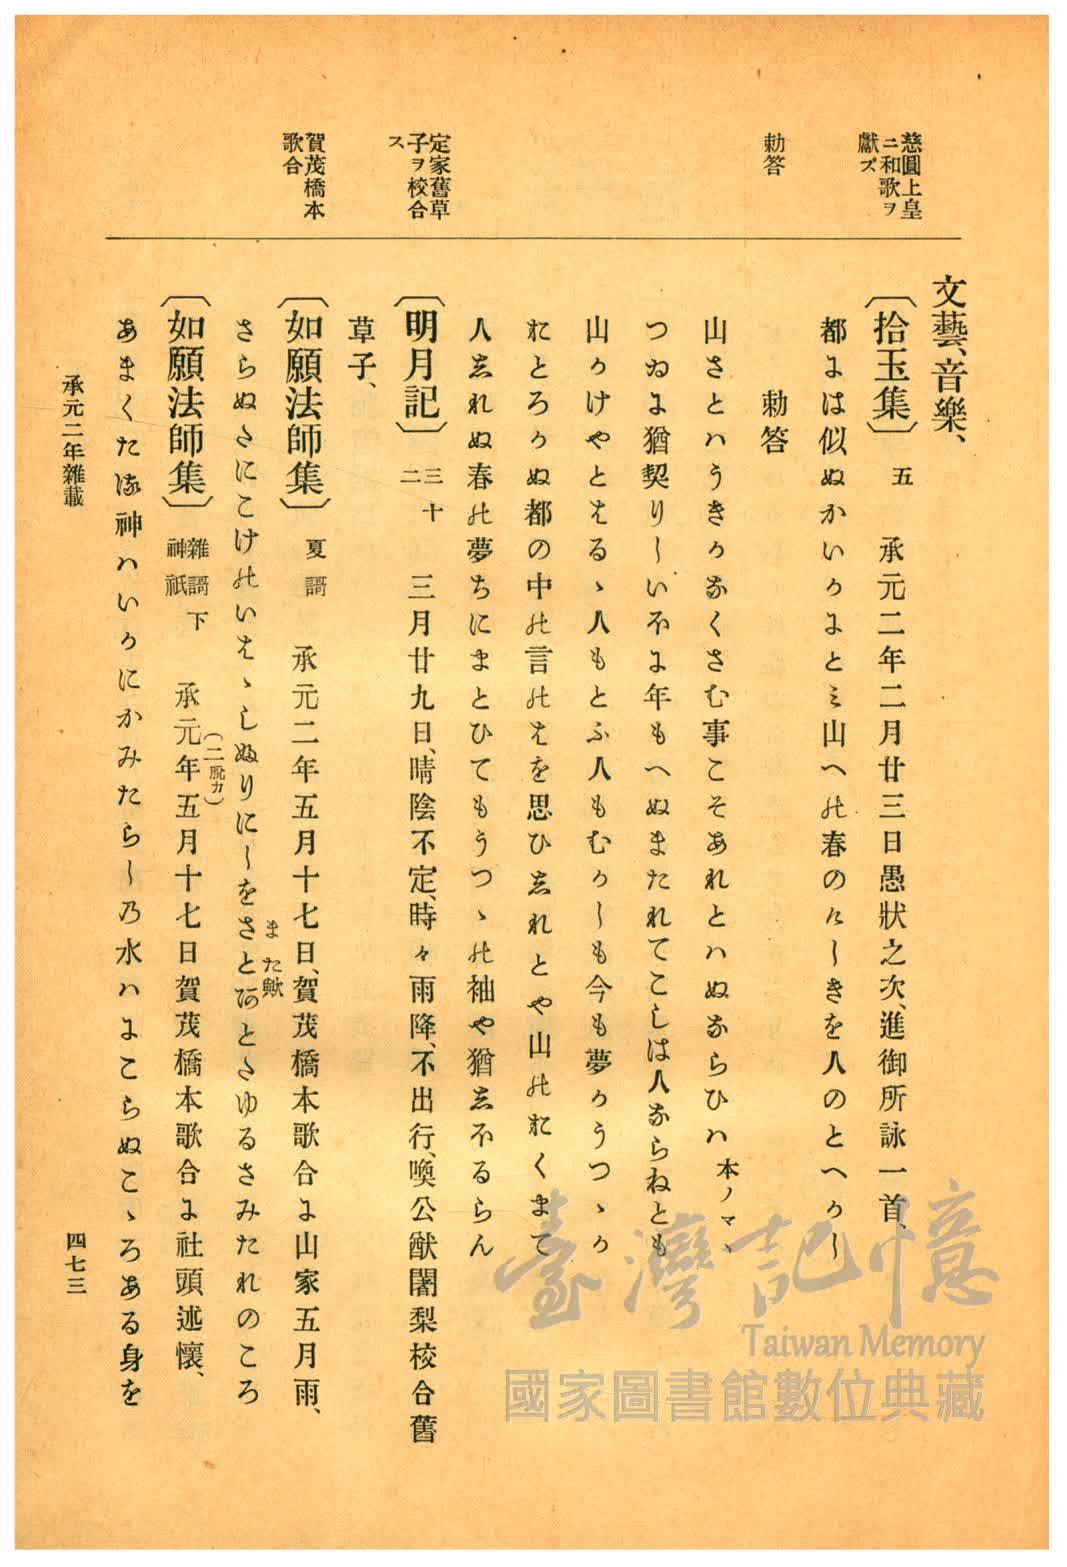 慈圓上皇
ニ和歌ヲ
獻ズ
勅答
定家舊草
子ヲ校合
ス
賀茂橋本
歌合
文藝、音樂、
〔拾玉集〕 五 承元二年二月廿三日愚狀之次、進御所詠一首、
都よは似ぬかいかよとミ山への春のけしきを人のとへかし
勅答
山さとハうきかなくさむ事こそあれとハぬならひハ 本ノマヽ
つゐよ猶契りしいほよ年もへぬまたれてこしは人ならねとも
山かけやとはるゝ人もとふ人もむかしも今も夢かうつゝか
おとろかぬ都の中の言のはを思ひしれとや山のおくまて
人しれぬ春の夢ちにまとひてもうつゝの袖や猶しほるらん
〔明月記〕 三十二 三月廿九日、晴陰不定、時々雨降、不出行、喚公猷闍梨校合舊
草子、
〔如願法師集〕 夏謌 承元二年五月十七日、賀茂橋本歌合よ山家五月雨、
さらぬたにこけのいはゝしぬりにしをさとあとたゆるさみたれのころ
また歟
〔如願法師集〕 雜謌下 神祇 承元年五月十七日賀茂橋本歌合よ社頭述懷、
（二脫カ）
あまくたる神ハいかにかみたらし乃水ハよこらぬこゝろある身を
承元二年雜載
四七三
臺灣記憶
Taiwan Memory
國家圖書館數位典藏